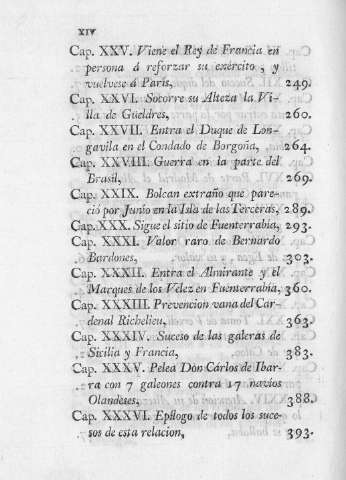 XIV
Cap. XXV. Viene el Rey de Francia en
persona á reforzar su exército, y
vuelvese á París, 249.
Cap. XXVI. Socorre su Alteza la Vi-
lla de Güeldres, 260.
Cap. XXVII. Entra el Duque de Lon-
gavila en el Condado de Borgoña, 264.
Cap. XXVIII. Guerra en la parte del
Brasil, 269.
Cap. XXIX. Bolcan extraño que pare-
ció por Junio en la Isla de las Terceras, 289.
Cap. XXX. Sigue el sitio de Fuenterrabía, 293.
Cap. XXXI. Valor raro de Bernardo
Bardones, 303.
Cap. XXXII. Entra el Almirante y el
Marques de los Velez en Fuenterrabía, 360.
Cap. XXXIII. Prevencion vana del Car-
denal Richelieu, 363.
Cap. XXXIV. Suceso de las galeras de
Sicilia y Francia, 383.
Cap. XXXV. Pelea Dòn Cárlos de Ibar-
ra con 7 galeones contra 17 navíos
Olandeses, 388.
Cap. XXXVI. Epílogo de todos los suce-
sos de esta relacion, 393.